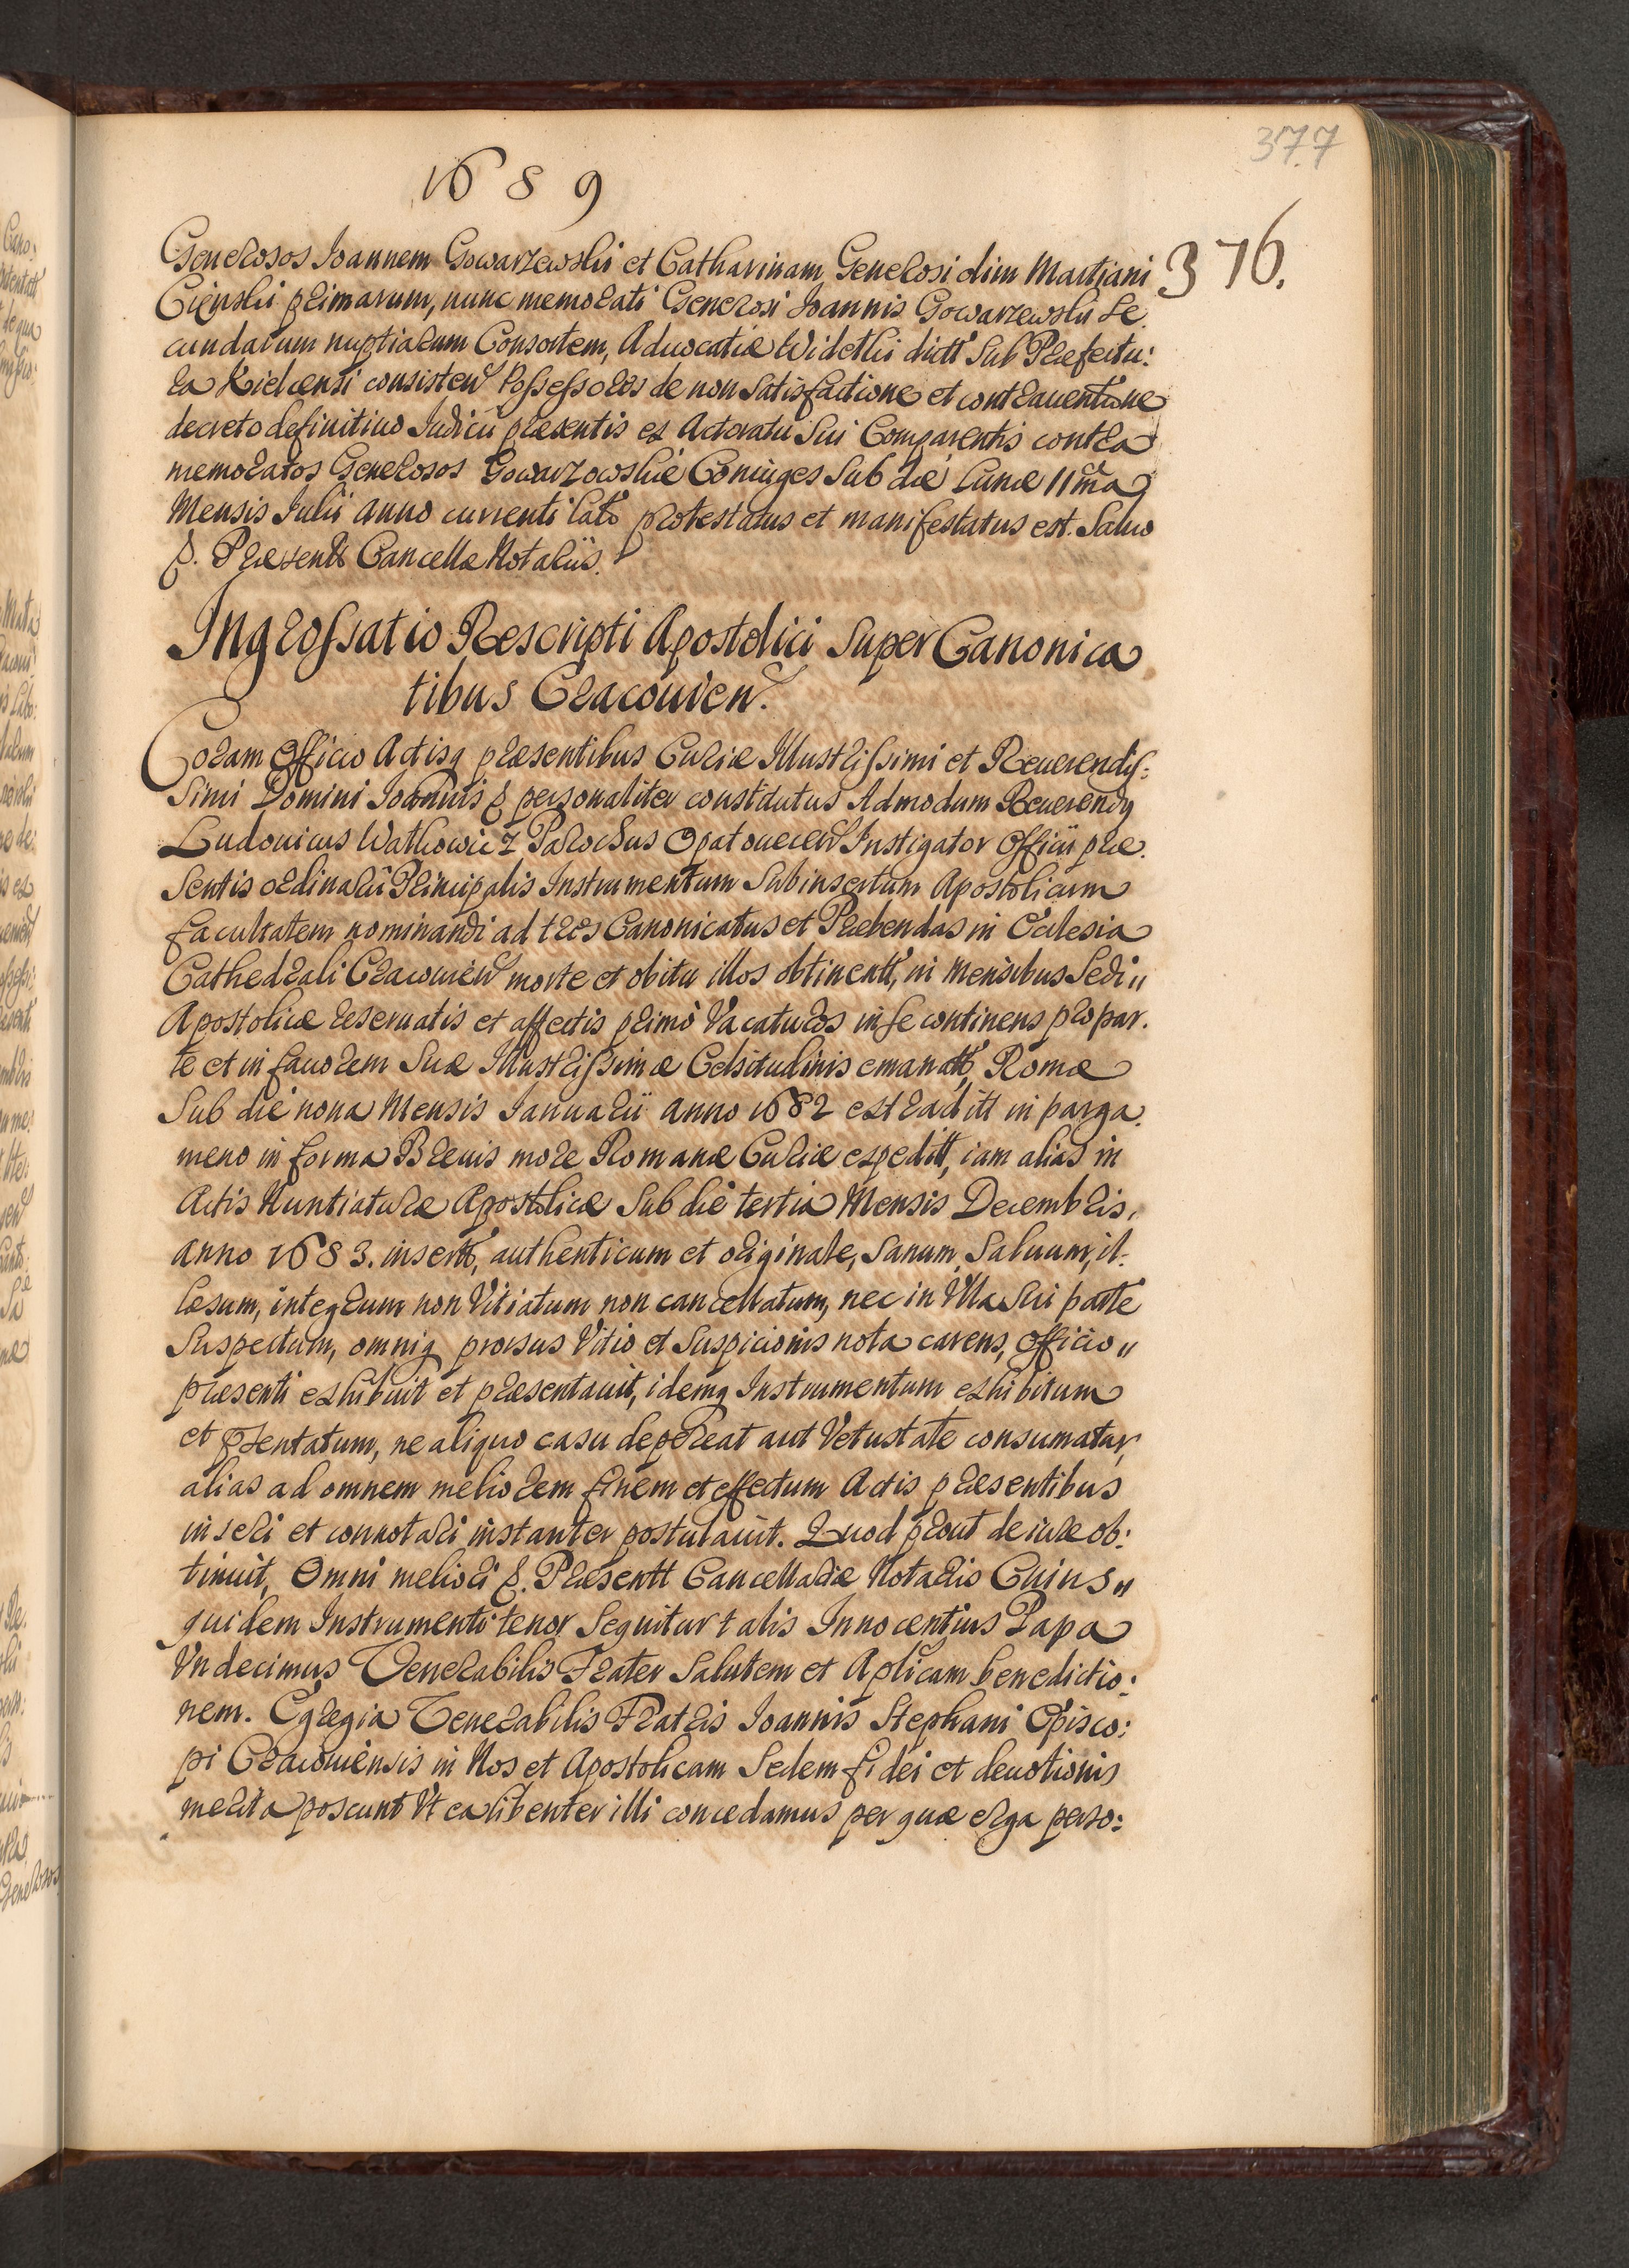 377
1689
376.
Generosos Joannem Gowarzewski et Catharinam Generosi olim Martiani
Cienski primarum, nunc memorati Generosi Joannis Gowarzewski Se
cundarum nuptiarum Consortem, Aduocatiæ Widethi dictt Sub Præfectu:
ra Kielcensi consisten Possessores de non Satisfactione et contrauentione
decreto definitiuo Judicii præsentis ex Actoratu Sui Comparentis contra
memoratos Generosos Gowarzowskie Coniuges Sub die Lunæ 11ma
Mensis Julii Anno currenti lato protestatus et manifestatus est. Saluo
p. Præsentt Cancellæ Notariis.
Ingrossatio Rescripti Apostolici Super Canonica
tibus Cracouien.
Coram Officio Actisq præsentibus Curiæ Illustrissimi et Reuerendis:
Simi Domini Joannis p personaliter constitutus Admodum Reuerendq
Ludouicus Wathowicz Parochus Opatouecen Instigator Officii præ
Sentis ordinarii Principalis Instrumentum Subinsertum Apostolicum
facultatem nominandi ad tres Canonicatus et Præbendas in Ecclesia
Cathedrali Cracouien morte et obitu illos obtinentt, in mensibus Sedi
Apostolicæ reseruatis et affectis primo Vacaturos in se continens pro par
te et in fauorem Suæ Illustrissimæ Celsitudinis emanatt, Romæ
Sub die nona Mensis Januarii Anno 1682 extraditt in parga
meno in forma Breuis more Romanæ Curiæ expeditt, iam alias in
Actis Nuntiaturæ Apostolicæ Sub die tertia Mensis Decembris,
Anno 1683. insertt, authenticum et originale, Sanum, Saluum, il:
læsum, integrum non Vitiatum non cancellatum, nec in Vlla Sui parte
Suspectum, omniq prorsus Vitio et Suspicionis nota carens, Officio
præsenti exhibuit et præsentauit, idemq Instrumentum exhibitum
et psentatum, ne aliquo casu depereat aut Vetustate consumatur,
alias ad omnem meliorem finem et effectum Actis præsentibus
inseri et connotari instanter postulauit. Quod prout de iure ob:
tinuit, Omni meliori p. Præsentt Cancellariæ Notariis Cuius
quidem Instrumenti tenor Sequitur talis Innocentius Papa
Vndecimus Venerabilis Frater Salutem et Aplicam benedictio:
nem. Egregia Venerabilis Fratris Joannis Stephani Episco:
pi Cracouiensis in Nos et Apostolicam Sedem fidei et deuotionis
merita poscunt Vt ea libenter illi concedamus per quæ erga perso: